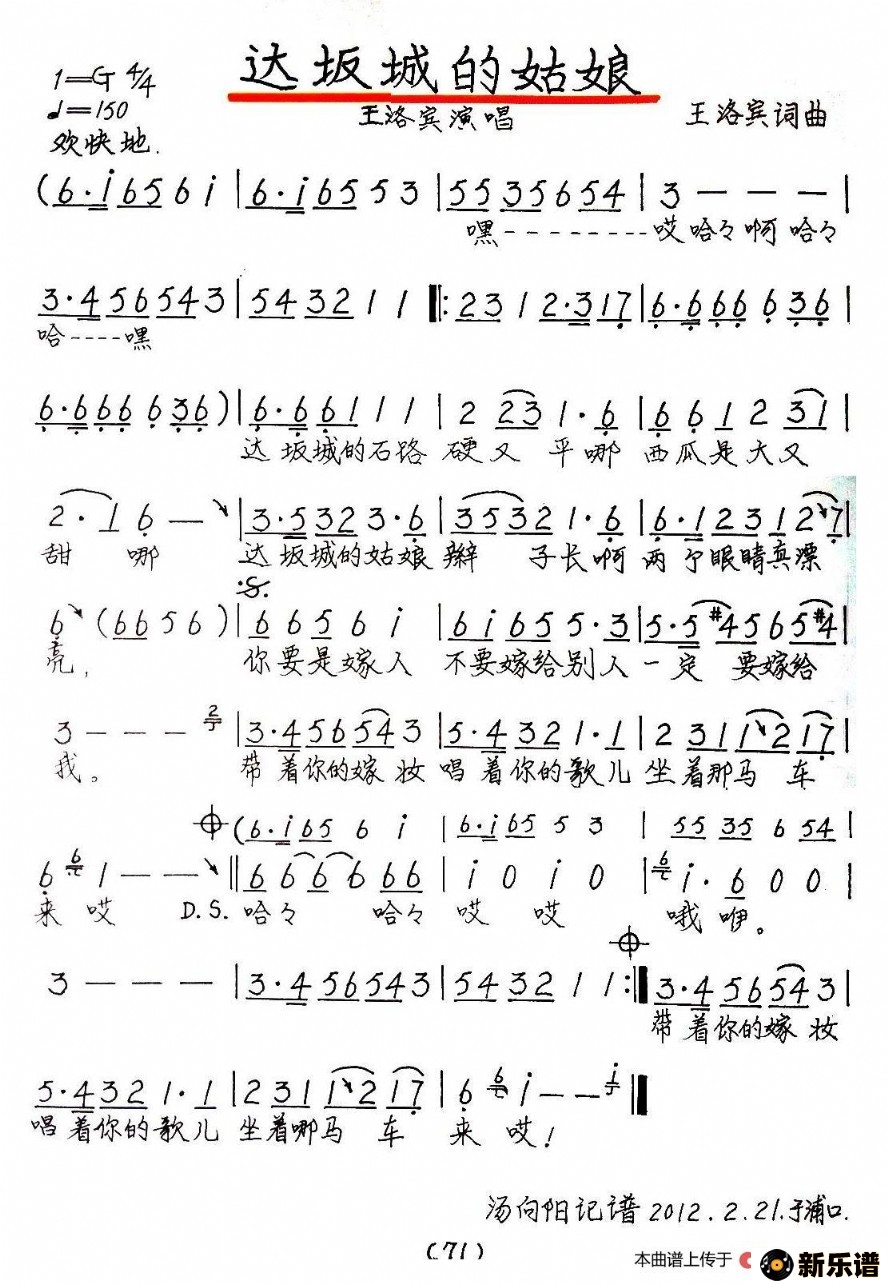 达坂城的姑娘
1=G 4/4
♩=150
王洛宾演唱
王洛宾词曲
欢快地.
(6·i 656i | 6·i 65 53 | 55 35 6 54 | 3 - - - |
嘿--------哎哈々啊哈々
3·4 56 54 3 | 54 32 1 1 |: 2 3 1 2·3 17 | 6·6 66 6 36 |
哈----嘿
6·6 66 6 36 ) | 6·6 61 1 1 | 2 23 1·6 | 6 6 1 2 31 |
达坂城的石路硬又平哪西瓜是大又
2·1 6 - | 3·5 32 3·6 | 35 32 1·6 | 6·1 23 1 27 |
甜哪达坂城的姑娘辫子长啊两个眼睛真漂
6 (66 56) | 6 6 5 6 i | 6i 65 5·3 | 5·5 #45 6 5#4 |
亮,你要是嫁人不要嫁给别人一定要嫁给
3 - - - 2 | 3·4 56 54 3 | 5·4 32 1·1 | 2 31 12 17 |
我。带着你的嫁妆唱着你的歌儿坐着那马车
(6·i 65 6 i | 6·i 65 5 3 | 55 35 6 54 |
6 6 1 - - || 6 6 6 6 66 | i 0 i 0 | 6 i·6 0 0 |
来哎 D.S. 哈々哈々哎哎哦咿。
3 - - - | 3·4 56 54 3 | 54 32 1 1 :|| 3·4 56 54 3 |
带着你的嫁妆
5·4 32 1·1 | 2 31 12 17 | 6 6 i - - i ||
唱着你的歌儿坐着哪马车来哎!
汤向阳记谱2012.2.21.于浦口.
(71)
本曲谱上传于
新乐谱